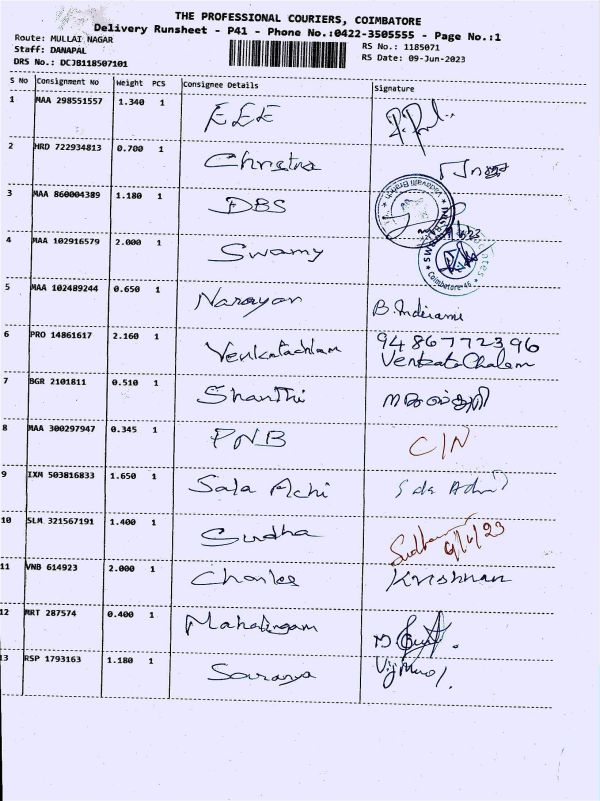 THE PROFESSIONAL COURIERS, COIMBATORE
Delivery Runsheet - P41 - Phone No.:0422-3505555 - Page No.:1
Route: MULLAI NAGAR
Staff: DANAPAL
DRS No.: DCJB118507101
RS No.: 1185071
RS Date: 09-Jun-2023
S No Consignment No Weight PCS Consignee Details Signature
1 MAA 298551557 1.340 1 EEE
2 HRD 722934813 0.700 1 Chritra
3 MAA 860004389 1.180 1 DBS
4 MAA 102916579 2.000 1 Swamy
Coimbatore-46
5 MAA 102489244 0.650 1 Narayan B. Indirani
6 PRO 14861617 2.160 1 Venkatachlam 9486772396
VenkataChalem
7 BGR 2101811 0.510 1 Shanthi
8 MAA 300297947 0.345 1 PNB C/N
9 IXM 503816833 1.650 1 Sala Achi
10 SLM 321567191 1.400 1 Sudha Sudha
9/6/23
11 VNB 614923 2.000 1 Charles Krishnan
12 MRT 287574 0.400 1 Mahalingam
13 RSP 1793163 1.180 1 Saranya